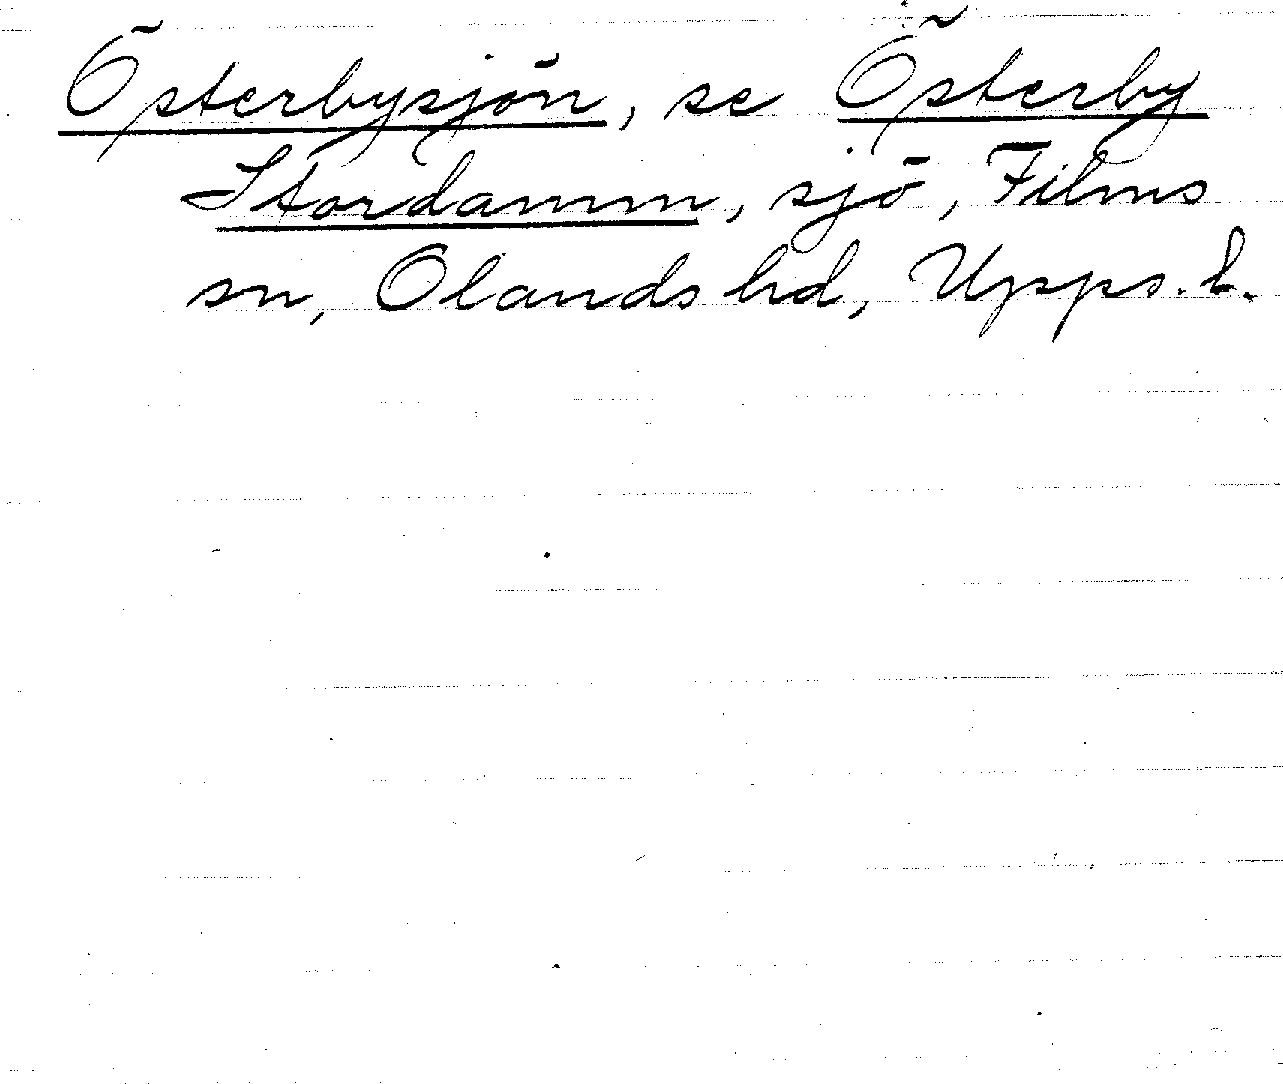 Österbysjön, se Österby
Stordamm, sjö, Films
sn, Olands hd, Upps. l.